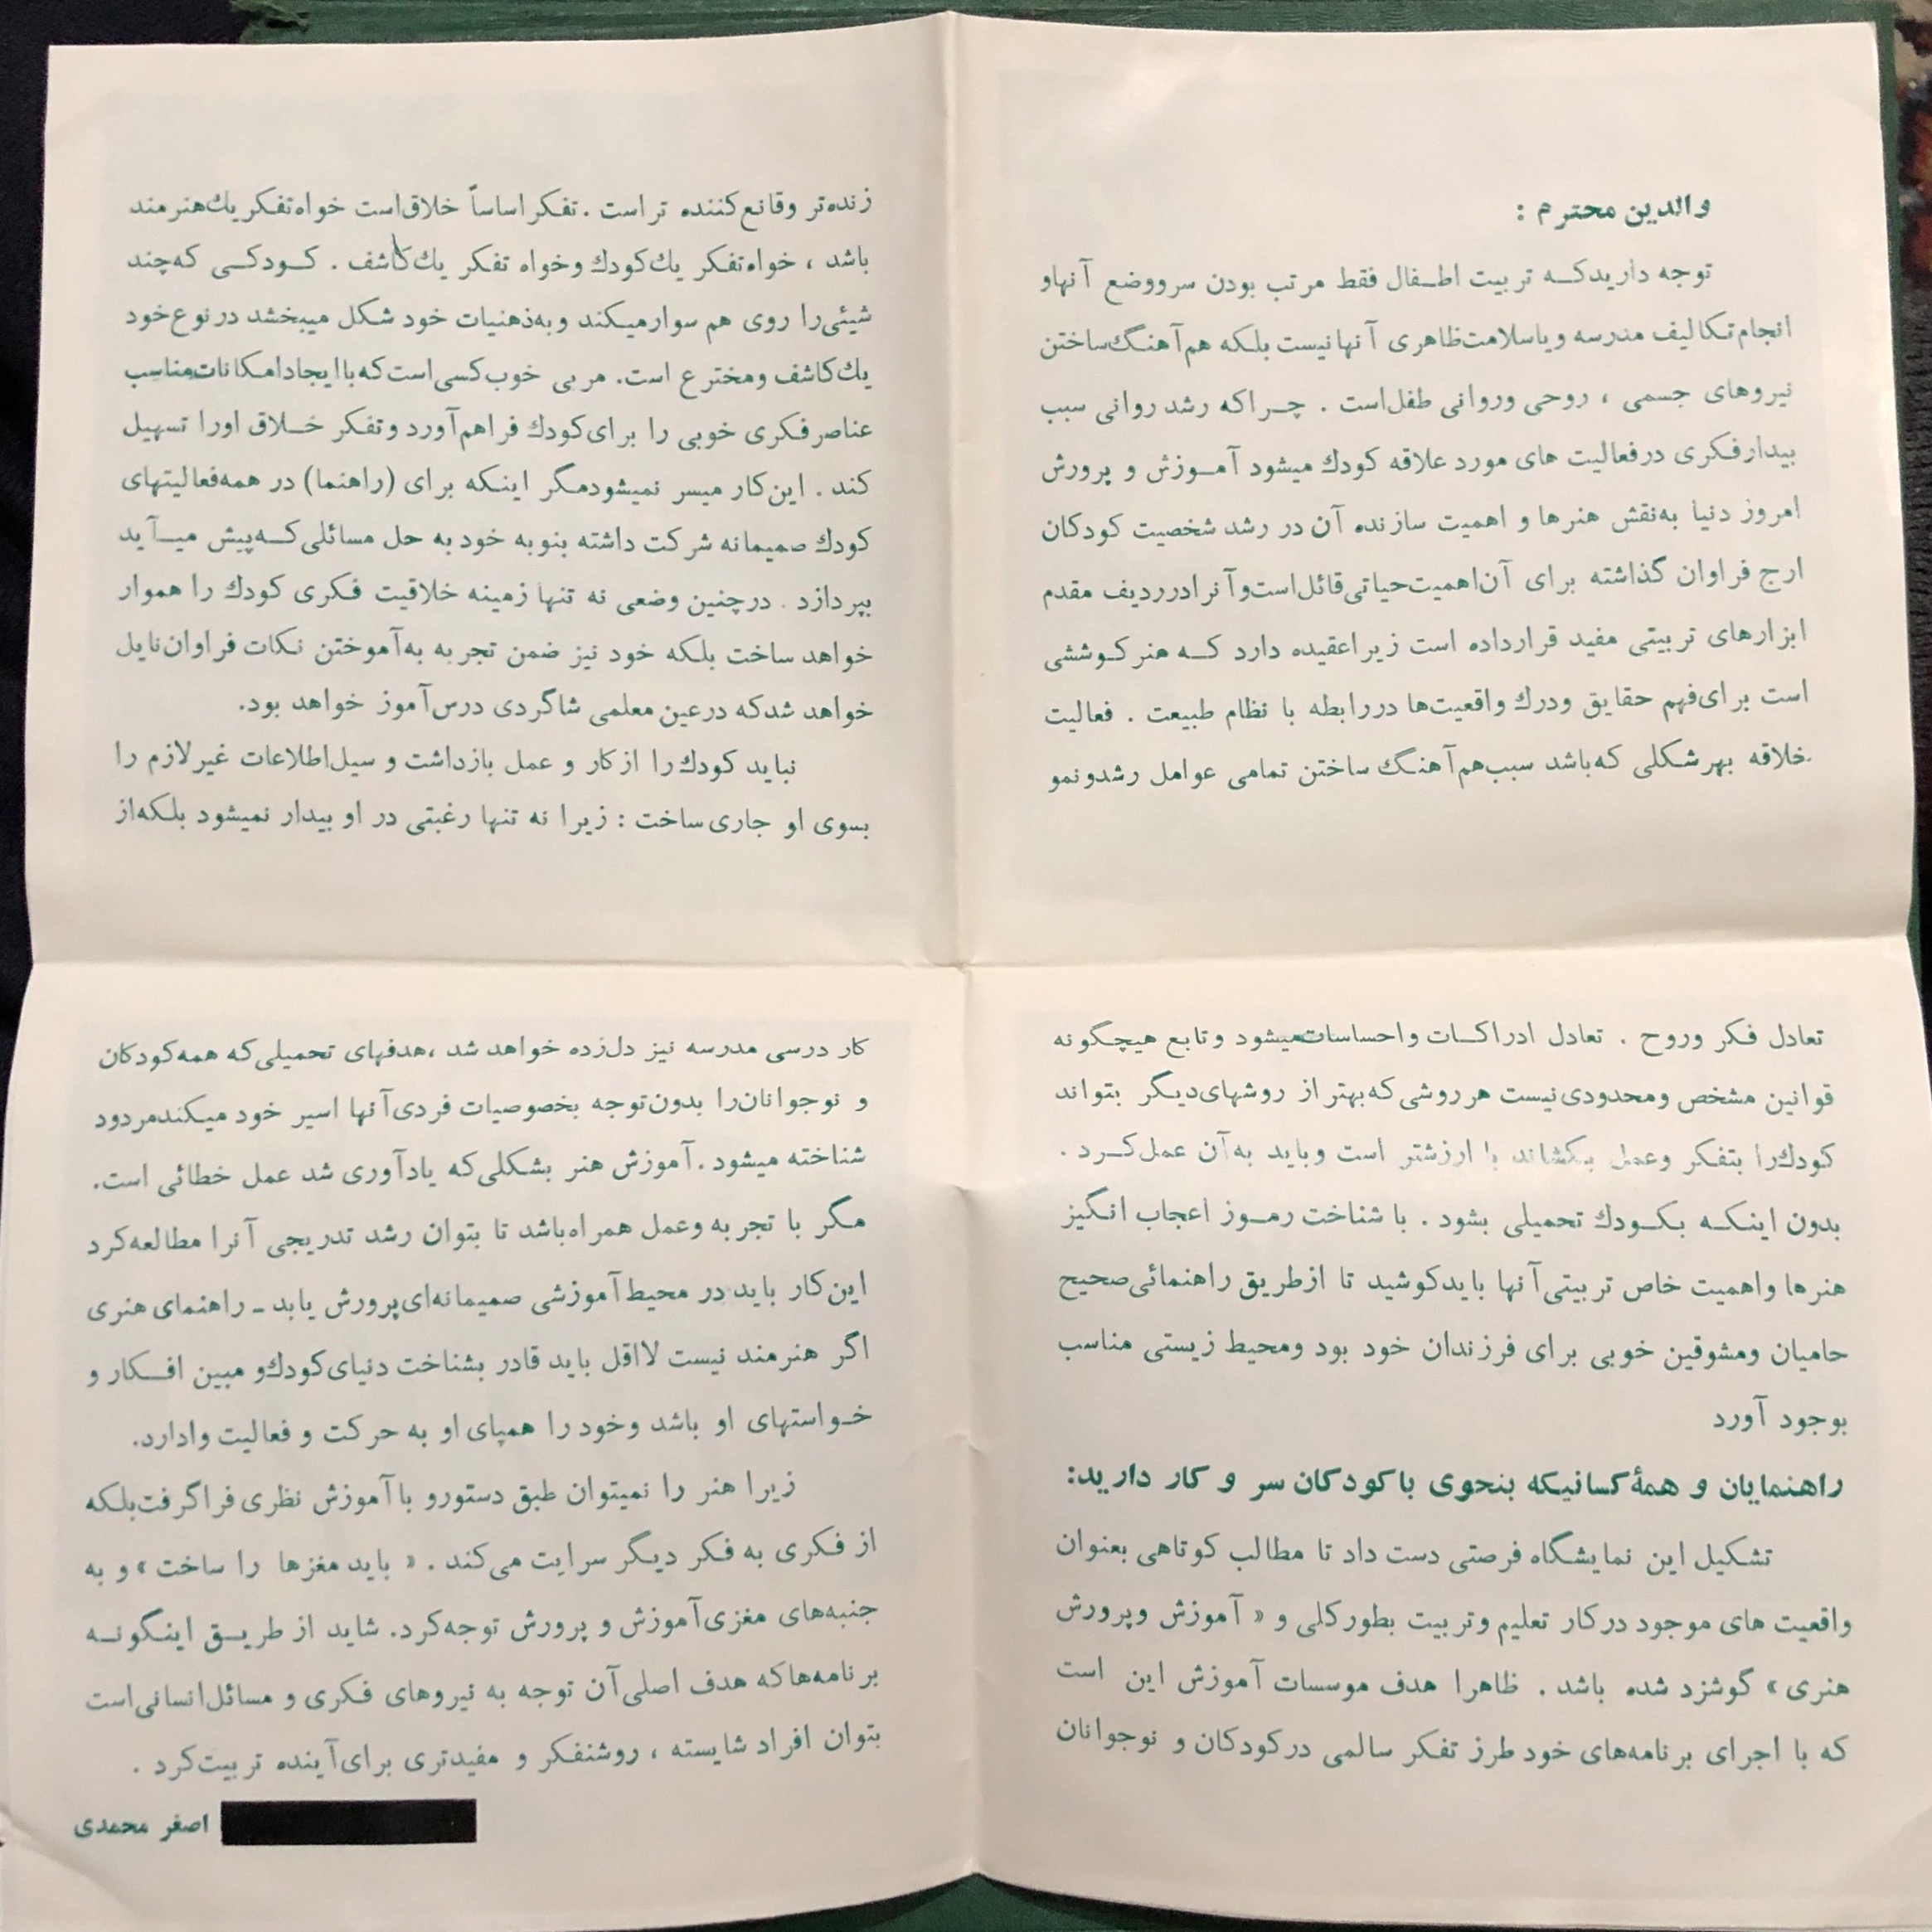 والدین محترم :
توجه دارید که تربیت اطفال فقط مرتب بودن سر و وضع آنها و
انجام تکالیف مدرسه و یا سلامت ظاهری آنها نیست بلکه هم آهنگ ساختن
نیروهای جسمی ، روحی و روانی طفل است . چرا که رشد روانی سبب
بیدار فکری در فعالیت های مورد علاقه کودك میشود آموزش و پرورش
امروز دنیا به نقش هنرها و اهمیت سازنده آن در رشد شخصیت کودکان
ارج فراوان گذاشته برای آن اهمیت حیاتی قائل است و آنرا در ردیف مقدم
ابزارهای تربیتی مفید قرار داده است زیرا عقیده دارد که هنر کوششی
است برای فهم حقایق و درك واقعیت‌ها در رابطه با نظام طبیعت . فعالیت
خلاقه بهر شکلی که باشد سبب هم آهنگ ساختن تمامی عوامل رشد و نمو
تعادل فکر و روح . تعادل ادراکات و احساسات میشود و تابع هیچگونه
قوانین مشخص و محدودی نیست هر روشی که بهتر از روشهای دیگر بتواند
کودك را بتفکر و عمل بکشاند با ارزشتر است و باید به آن عمل کرد .
بدون اینکه بکودك تحمیلی بشود . با شناخت رموز اعجاب انگیز
هنرها و اهمیت خاص تربیتی آنها باید کوشید تا از طریق راهنمائی صحیح
حامیان و مشوقین خوبی برای فرزندان خود بود و محیط زیستی مناسب
بوجود آورد
راهنمایان و همهٔ کسانیکه بنحوی با کودکان سر و کار دارید:
تشکیل این نمایشگاه فرصتی دست داد تا مطالب کوتاهی بعنوان
واقعیت های موجود در کار تعلیم و تربیت بطور کلی و « آموزش و پرورش
هنری » گوشزد شده باشد . ظاهرا هدف موسسات آموزش این است
که با اجرای برنامه‌های خود طرز تفکر سالمی در کودکان و نوجوانان
زنده تر و قانع کننده تر است . تفکر اساساً خلاق است خواه تفکر یك هنرمند
باشد ، خواه تفکر یك کودك و خواه تفکر یك کاشف . کودکی که چند
شیئی را روی هم سوار میکند و به ذهنیات خود شکل میبخشد در نوع خود
یك کاشف و مخترع است. مربی خوب کسی است که با ایجاد امکانات مناسب
عناصر فکری خوبی را برای کودك فراهم آورد و تفکر خلاق او را تسهیل
کند . این کار میسر نمیشود مگر اینکه برای (راهنما) در همه فعالیتهای
کودك صمیمانه شرکت داشته بنوبه خود به حل مسائلی که پیش میآید
بپردازد . در چنین وضعی نه تنها زمینه خلاقیت فکری کودك را هموار
خواهد ساخت بلکه خود نیز ضمن تجربه به آموختن نکات فراوان نایل
خواهد شد که در عین معلمی شاگردی درس آموز خواهد بود.
نباید کودك را از کار و عمل بازداشت و سیل اطلاعات غیر لازم را
بسوی او جاری ساخت : زیرا نه تنها رغبتی در او بیدار نمیشود بلکه از
کار درسی مدرسه نیز دل زده خواهد شد ، هدفهای تحمیلی که همه کودکان
و نوجوانان را بدون توجه بخصوصیات فردی آنها اسیر خود میکند مردود
شناخته میشود . آموزش هنر بشکلی که یادآوری شد عمل خطائی است.
مگر با تجربه و عمل همراه باشد تا بتوان رشد تدریجی آنرا مطالعه کرد
این کار باید در محیط آموزشی صمیمانه‌ای پرورش یابد - راهنمای هنری
اگر هنرمند نیست لااقل باید قادر بشناخت دنیای کودك و مبین افکار و
خواستهای او باشد و خود را همپای او به حرکت و فعالیت وادارد.
زیرا هنر را نمیتوان طبق دستور و با آموزش نظری فرا گرفت بلکه
از فکری به فکر دیگر سرایت می‌کند . « باید مغزها را ساخت » و به
جنبه‌های مغزی آموزش و پرورش توجه کرد. شاید از طریق اینگونه
برنامه‌ها که هدف اصلی آن توجه به نیروهای فکری و مسائل انسانی است
بتوان افراد شایسته ، روشنفکر و مفیدتری برای آینده تربیت کرد .
اصغر محمدی